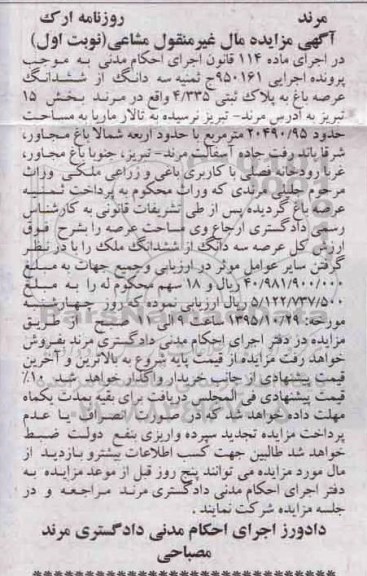 مرند روزنامه ارک
آگهی مزایده مال غیرمنقول مشاعی(نوبت اول)
در اجرای ماده ۱۱۴ قانون اجرای احکام مدنی به موجب
پرونده اجرایی ۹۵۰۱۶۱ج ثمنیه سه دانگ از ششدانگ
عرصه باغ به پلاک ثبتی ۴/۳۳۵ واقع در مرند بخش ۱۵
تبریز به آدرس مرند- تبریز نرسیده به تالار ماریا به مساحت
حدود ۲۰۴۹۰/۹۵ مترمربع با حدود اربعه شمالا باغ مجاور،
شرقا باند رفت جاده آسفالت مرند-تبریز، جنوبا باغ مجاور،
غربا رودخانه فصلی با کاربری باغی و زراعی ملکی وراث
مرحوم جلیل مرندی که وراث محکوم به پرداخت ثمنیه
عرصه باغ گردیده پس از طی تشریفات قانونی به کارشناس
رسمی دادگستری ارجاع وی مساحت عرصه را بشرح فوق
ارزش کل عرصه سه دانگ از ششدانگ ملک را با در نظر
گرفتن سایر عوامل موثر در ارزیابی وجمیع جهات به مبلغ
۴۰/۹۸۱/۹۰۰/۰۰۰ ریال و ۱۸ سهم محکوم له را به مبلغ
۵/۱۲۲/۷۳۷/۵۰۰ ریال ارزیابی نموده که روز چهارشنبه
مورخه: ۱۳۹۵/۱۰/۲۹ ساعت ۹ الی ۱۱ صبح از طریق
مزایده در دفتر اجرای احکام مدنی دادگستری مرند بفروش
خواهد رفت مزایده از قیمت پایه شروع به بالاترین و آخرین
قیمت پیشنهادی از جانب خریدار واگذار خواهد شد ۱۰٪
قیمت پیشنهادی فی المجلس دریافت برای بقیه بمدت یکماه
مهلت داده خواهد شد که در صورت انصراف یا عدم
پرداخت مزایده تجدید سپرده واریزی بنفع دولت ضبط
خواهد شد طالبین جهت کسب اطلاعات بیشترو بازدید از
مال مورد مزایده می توانند پنج روز قبل از موعد مزایده به
دفتر اجرای احکام مدنی دادگستری مرند مراجعه و در
جلسه مزایده شرکت نمایند .
دادورز اجرای احکام مدنی دادگستری مرند
مصباحی